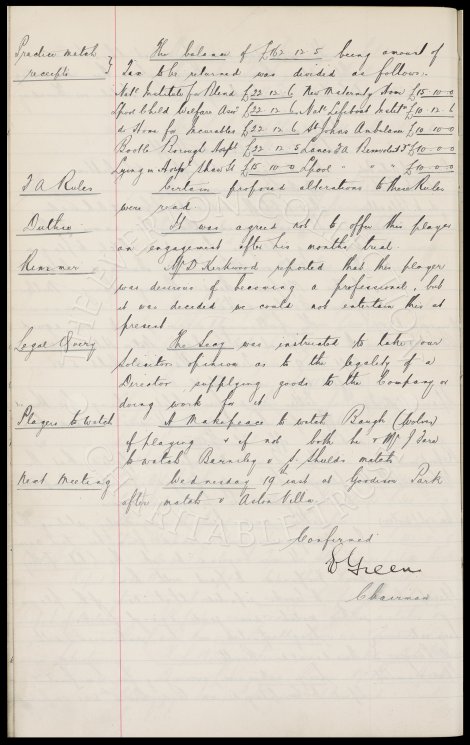 Practice match receipts } The balance of £162.12.5 being amount of
Tax to be returned was divided as follows.
Natl Institute for Blind £22.12.6 New Maternity Home £15.10.0
Lpool Child Welfare Assn £22.12.6 Natl Lifeboat Instn £10.12.6
do Home for Incurables £22.12.6 St Johns Ambulance £10.10.0
Bootle Borough Hospl £22.12.5 Lancs FA Benevolent Fd £10.10.0
Lying in Hospl Shaw St £15.10.0 Lpool " " " £10.0.0
F A Rules Certain proposed alterations to these Rules
were read.
Duthie It was agreed not to offer this player
an engagement after his months trial.
Rimmer Mr D. Kirkwood reported that this player
was desirous of becoming a professional, but
it was decided we could not entertain this at
present
Legal Query The Secy was instructed to take our
Solicitors opinion as to the legality of a
Director supplying goods to the Company or
doing work for it
Players to watch A Makepeace to watch Baugh (Wolves)
if playing & if not both he & Mr J Fare
to watch Barnsley v S. Shields match
Next Meeting Wednesday 19th inst at Goodison Park
after match v Aston Villa.
Confirmed
D Green
Chairman
THE EVERTON COLLECTION
CHARITABLE TRUST